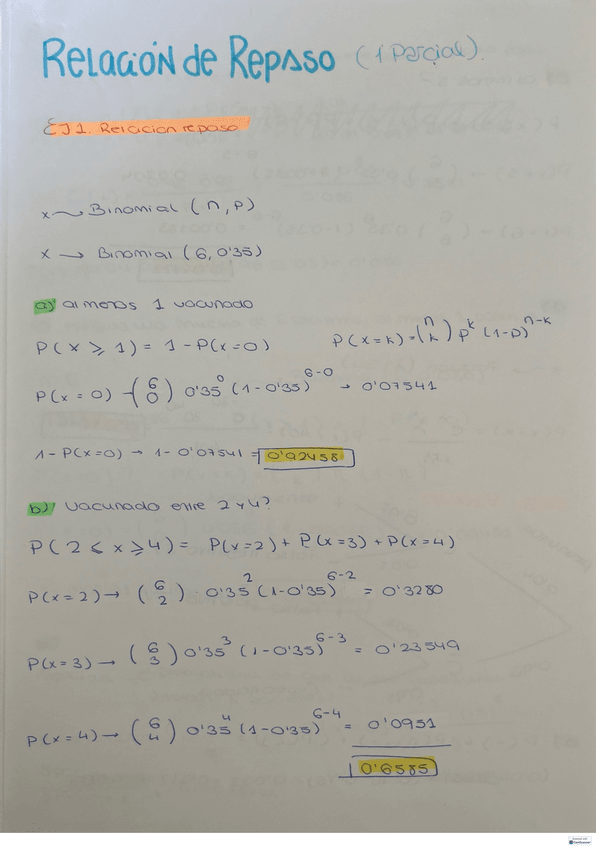 Relación de Repaso (1 Parcial).
EJ1. Relacion repaso
x ~ Binomial (n, p)
x → Binomial (6, 0'35)
a) al menos 1 vacunado
P(x ⩾ 1) = 1 - P(x=0)
P(x=k) = (n k) p^k (1-p)^n-k
P(x=0) → (6 0) 0'35^0 (1-0'35)^6-0 → 0'07541
1-P(x=0) → 1-0'07541 = 0'92458
b) vacunado entre 2 y 4?
P(2 ⩽ x ⩾ 4) = P(x=2) + P(x=3) + P(x=4)
P(x=2) → (6 2) · 0'35^2 (1-0'35)^6-2 = 0'3280
P(x=3) → (6 3) 0'35^3 (1-0'35)^6-3 = 0'23549
P(x=4) → (6 4) 0'35^4 (1-0'35)^6-4 = 0'0951
0'6585